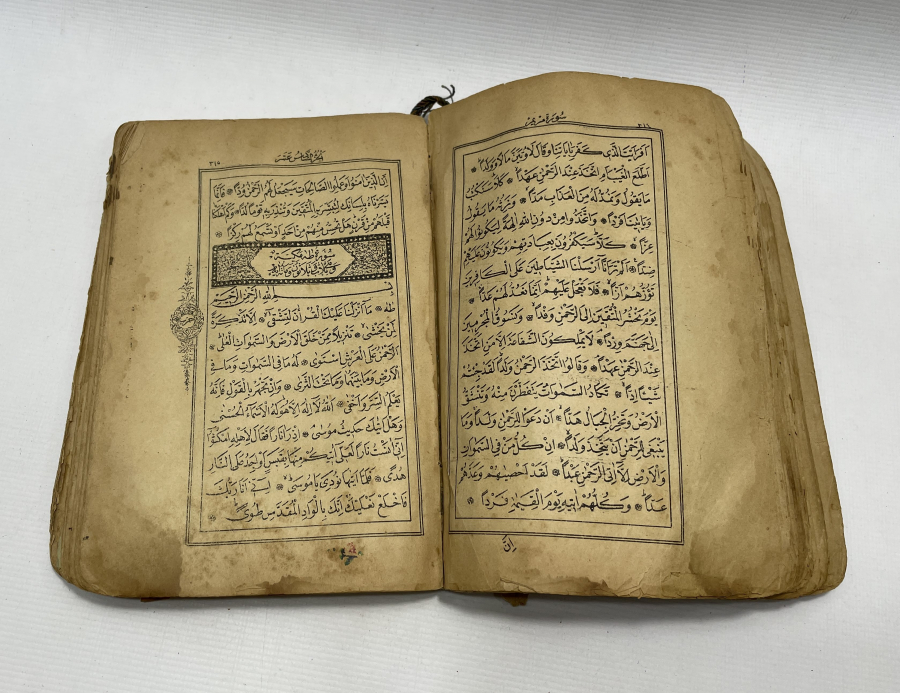 سورة مريم
اَفَرَاَيْتَ الَّذِي كَفَرَ بِاٰيَاتِنَا وَقَالَ لَاُوتَيَنَّ مَالًا وَوَلَدًا
اَطَّلَعَ الْغَيْبَ اَمِ اتَّخَذَ عِنْدَ الرَّحْمٰنِ عَهْدًا كَلَّا سَنَكْتُبُ
مَا يَقُولُ وَنَمُدُّ لَهُ مِنَ الْعَذَابِ مَدًّا وَنَرِثُهُ مَا يَقُولُ
وَيَاْتِينَا فَرْدًا وَاتَّخَذُوا مِنْ دُونِ اللّٰهِ اٰلِهَةً لِيَكُونُوا لَهُمْ
عِزًّا كَلَّا سَيَكْفُرُونَ بِعِبَادَتِهِمْ وَيَكُونُونَ عَلَيْهِمْ
ضِدًّا اَلَمْ تَرَ اَنَّا اَرْسَلْنَا الشَّيَاطِينَ عَلَى الْكَافِرِينَ
تَؤُزُّهُمْ اَزًّا فَلَا تَعْجَلْ عَلَيْهِمْ اِنَّمَا نَعُدُّ لَهُمْ عَدًّا
يَوْمَ نَحْشُرُ الْمُتَّقِينَ اِلَى الرَّحْمٰنِ وَفْدًا وَنَسُوقُ الْمُجْرِمِينَ
اِلٰى جَهَنَّمَ وِرْدًا لَا يَمْلِكُونَ الشَّفَاعَةَ اِلَّا مَنِ اتَّخَذَ
عِنْدَ الرَّحْمٰنِ عَهْدًا وَقَالُوا اتَّخَذَ الرَّحْمٰنُ وَلَدًا لَقَدْ جِئْتُمْ
شَيْئًا اِدًّا تَكَادُ السَّمٰوَاتُ يَتَفَطَّرْنَ مِنْهُ وَتَنْشَقُّ
الْاَرْضُ وَتَخِرُّ الْجِبَالُ هَدًّا اَنْ دَعَوْا لِلرَّحْمٰنِ وَلَدًا وَمَا
يَنْبَغِي لِلرَّحْمٰنِ اَنْ يَتَّخِذَ وَلَدًا اِنْ كُلُّ مَنْ فِي السَّمٰوَاتِ
وَالْاَرْضِ اِلَّا اٰتِي الرَّحْمٰنِ عَبْدًا لَقَدْ اَحْصٰيهُمْ وَعَدَّهُمْ
عَدًّا وَكُلُّهُمْ اٰتِيهِ يَوْمَ الْقِيٰمَةِ فَرْدًا
اِنَّ
٣١٥ الجزء السادس عشر
اِنَّ الَّذِينَ اٰمَنُوا وَعَمِلُوا الصَّالِحَاتِ سَيَجْعَلُ لَهُمُ الرَّحْمٰنُ وُدًّا فَاِنَّمَا
يَسَّرْنَاهُ بِلِسَانِكَ لِتُبَشِّرَ بِهِ الْمُتَّقِينَ وَتُنْذِرَ بِهِ قَوْمًا لُدًّا وَكَمْ اَهْلَكْنَا
قَبْلَهُمْ مِنْ قَرْنٍ هَلْ تُحِسُّ مِنْهُمْ مِنْ اَحَدٍ اَوْ تَسْمَعُ لَهُمْ رِكْزًا
سورة طه مكية
بِسْمِ اللّٰهِ الرَّحْمٰنِ الرَّحِيمِ
طٰهٰ مَا اَنْزَلْنَا عَلَيْكَ الْقُرْاٰنَ لِتَشْقٰى اِلَّا تَذْكِرَةً
لِمَنْ يَخْشٰى تَنْزِيلًا مِمَّنْ خَلَقَ الْاَرْضَ وَالسَّمٰوَاتِ الْعُلٰى
اَلرَّحْمٰنُ عَلَى الْعَرْشِ اسْتَوٰى لَهُ مَا فِي السَّمٰوَاتِ وَمَا فِي
الْاَرْضِ وَمَا بَيْنَهُمَا وَمَا تَحْتَ الثَّرٰى وَاِنْ تَجْهَرْ بِالْقَوْلِ فَاِنَّهُ
يَعْلَمُ السِّرَّ وَاَخْفٰى اَللّٰهُ لَا اِلٰهَ اِلَّا هُوَ لَهُ الْاَسْمَاءُ الْحُسْنٰى
وَهَلْ اَتٰيكَ حَدِيثُ مُوسٰى اِذْ رَاٰ نَارًا فَقَالَ لِاَهْلِهِ امْكُثُوا
اِنِّي اٰنَسْتُ نَارًا لَعَلِّي اٰتِيكُمْ مِنْهَا بِقَبَسٍ اَوْ اَجِدُ عَلَى النَّارِ
هُدًى فَلَمَّا اَتٰيهَا نُودِيَ يَا مُوسٰى اِنِّي اَنَا رَبُّكَ
فَاخْلَعْ نَعْلَيْكَ اِنَّكَ بِالْوَادِ الْمُقَدَّسِ طُوًى